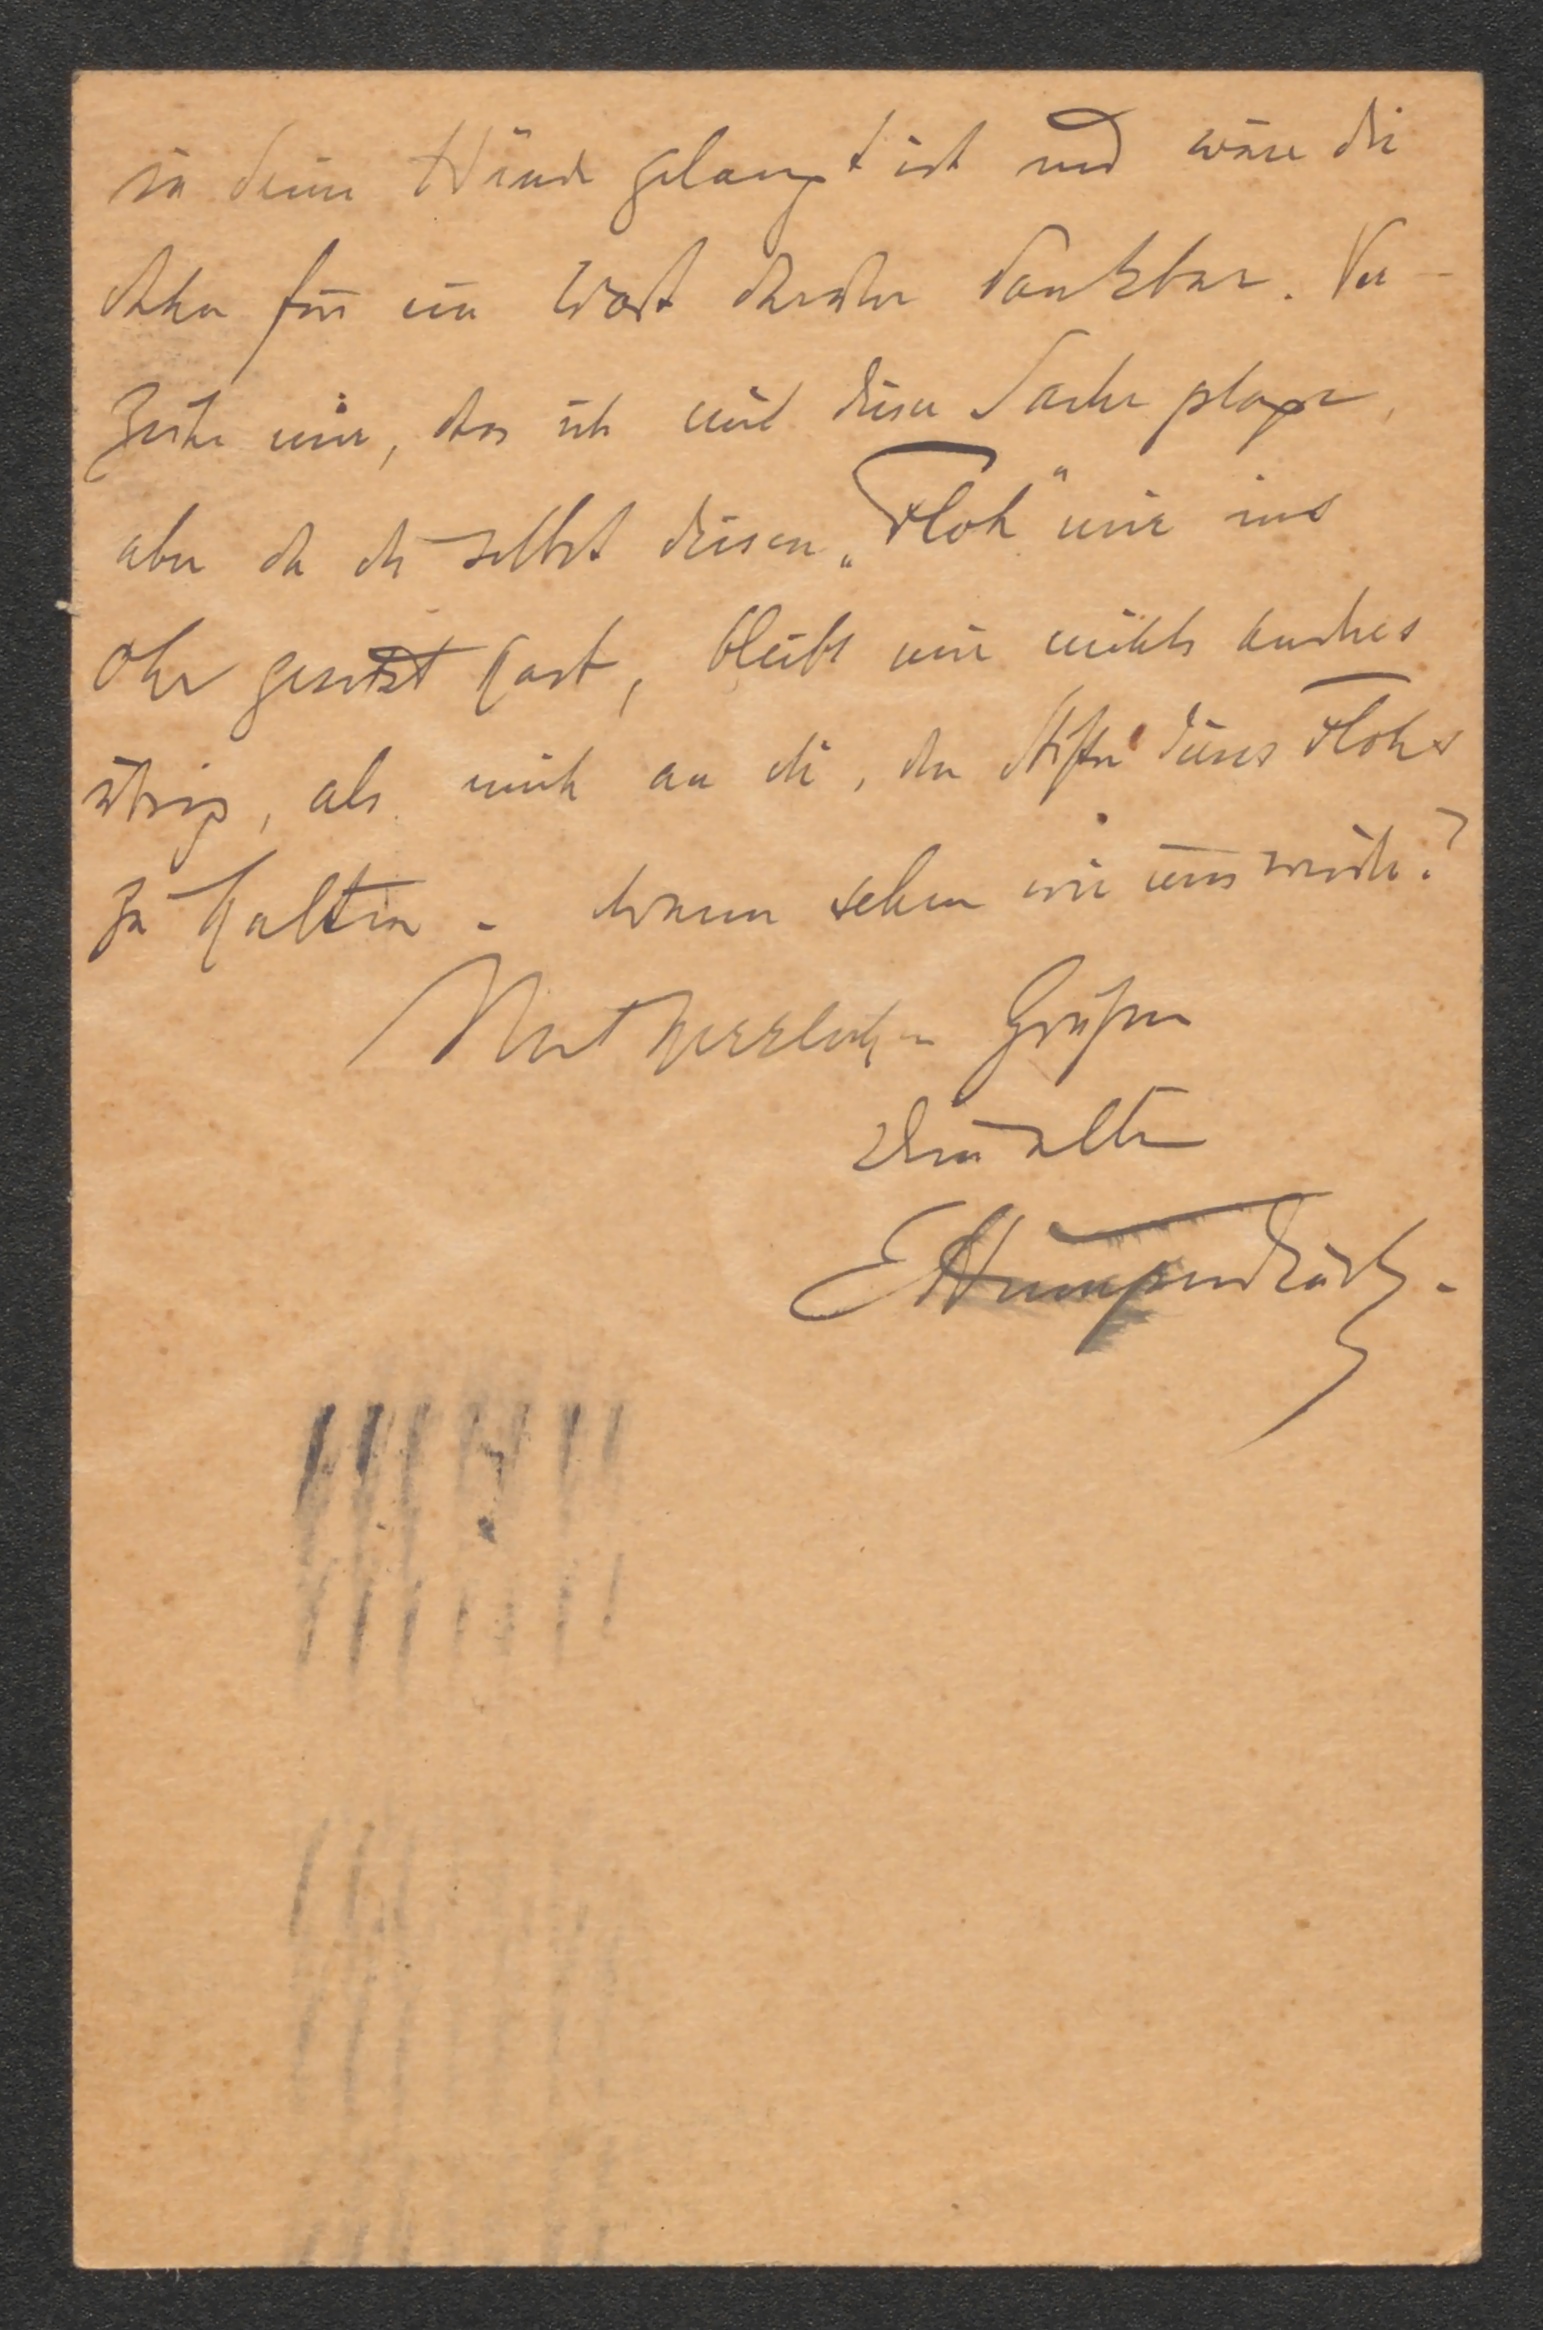 in deine Hände gelangt ist und wäre dir
daher für ein Wort darüber dankbar. Ver-
zeihe mir, das ich mit dieser Sache plage,
aber da du selbst diesen „Floh“ mir ins
Ohr gesetzt hast, bleibt mir nichts andres
übrig, als mich an dich, den Stifter dieses Flohs
zu halten. Wann sehen wir uns wieder?
Mit herzlichen Grüßen
dein alter
EHumperdinck.